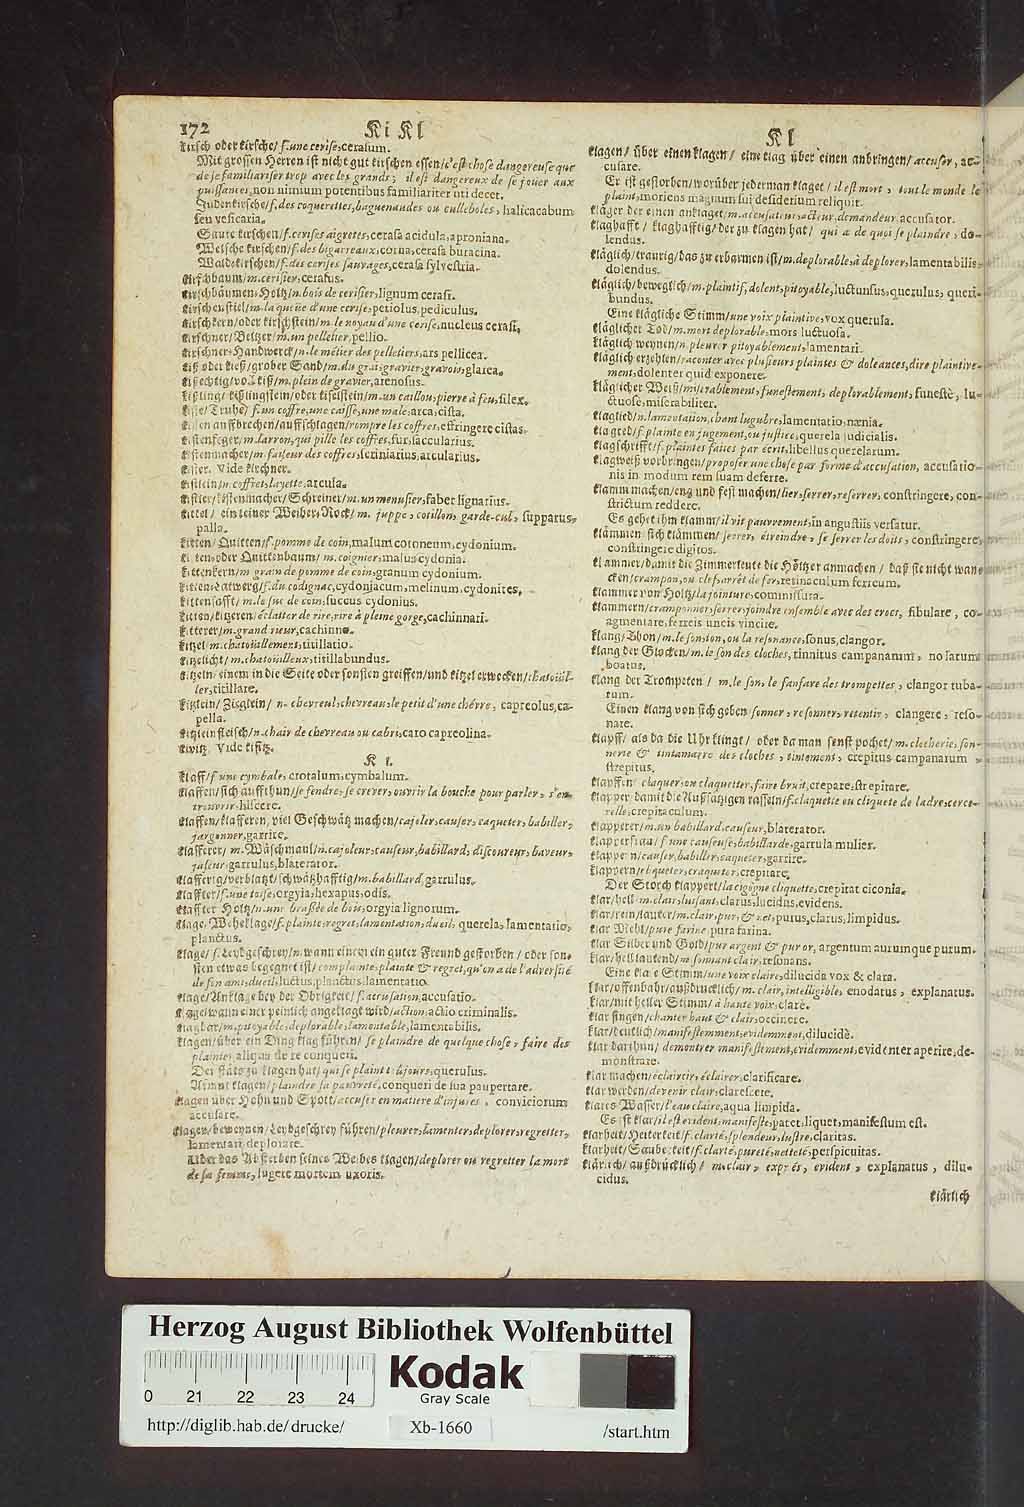 172
Ki Kl
Kirsch oder kirsche/ f. une cerise, cerasum.
Mit grossen Herren ist nicht gut kirschen essen/ c'est chose dangereuse que
de se familiariser trop avec les grands; il est dangereux de se jouer aux
puissances, non nimium potentibus familiariter uti decet.
Judenkirsche/ f. des coquerettes, baguenaudes ou culleboles, halicacabum
seu vesicaria.
Saure kirschen/ f. cerises aigretes, cerasa acidula, aproniana.
Welsche kirschen/ f. des bigarreaux, corna, cerasa buracina.
Waldkirschen/ f. des cerises sauvages, cerasa sylvestria.
Kirschbaum/ m. cerisier, cerasus.
Kirschbäumen Holtz/ n. bois de cerisier, lignum cerasi.
Kirschenstiel/ m. la queüe d'une cerise, petiolus, pediculus.
Kirschkern/ oder kirschstein/ m. le noyau d'une cerise, nucleus cerasi.
Kirschner/ Beltzer/ m. un pelletier, pellio.
Kirschner-Handwerck/ n. le métier des pelletiers, ars pellicea.
Kiß oder kieß/ grober Sand/ m. du grai, gravier, gravois, glarea.
Kißechtig/ voll kiß/ m. plein de gravier, arenosus.
Kißling/ kißlingstein/ oder kiselstein/ m. un caillou, pierre à feu, silex.
Kiste/ Truhe/ f. un coffre, une caisse, une male, arca, cista.
Kisten auffbrechen/ auffschlagen/ rompre les coffres, effringere cistas.
Kistenfeger/ m. larron, qui pille les coffres, fur, saccularius.
Kistenmacher/ m. faiseur des coffres, scriniarius, arcularius.
Kister. Vide kirchner.
Kistlein/ n. coffret, layette, arcula.
Kistler/ kistenmacher/ Schreiner/ m. un menusier, faber lignarius.
Kittel/ ein leiner Weiber-Rock/ m. juppe, cotillon, garde-cul, supparus,
palla.
Kitten/ Quitten/ f. pomme de coin, malum cotoneum, cydonium.
Kitten- oder Quittenbaum/ m. coignier, malus cydonia.
Kittenkern/ m. grain de pomme de coin, granum cydonium.
Kitten-Latwerg/ f. du codignac, cydoniacum, melinum, cydonites.
Kittensafft/ m. le suc de coin, succus cydonius.
Kitten/ kitzeren/ éclatter de rire, rire à pleine gorge, cachinnari.
Kitterer/ m. grand rieur, cachinno.
Kitzel/ m. chatoüillement, titillatio.
Kitzelicht/ m. chatoüilleux, titillabundus.
Kitzeln/ einem in die Seite oder sonsten greiffen/ und kitzel erwecken/ chatoüil-
ler, titillare.
Kitzlein/ Zißlein/ n. chevreul, chevreau, le petit d'une chévre, capreolus, ca-
pella.
Kitzleinfleisch/ n. chair de chevreau ou cabri, caro capreolina.
Kivitz. Vide kifitz.
K l.
Klaff/ f. une cymbale, crotalum, cymbalum.
Klaffen/ sich auffthun/ se fendre, se crever, ouvrir la bouche pour parler, s'en-
trouvrir, hiscere.
Klaffen/ klafferen, viel Geschwätz machen/ cajoler, causer, caqueter, babiller,
jargonner, garrire.
Klafferer/ m. Wäschmaul/ n. cajoleur, causeur, babillard, discoureur, baveur,
jaseur, garrulus, blaterator.
Klafferig/ verblatzt/ schwätzhafftig/ m. babillard, garrulus.
Klaffter/ f. une toise, orgyia, hexapus, odis.
Klaffter Holtz/ n. une brassée de bois, orgyia lignorum.
Klage/ Wehklage/ f. plainte, regret, lamentation, dueil, querela, lamentatio,
planctus.
Klage/ f. Leydgeschrey/ n. wann einem ein guter Freund gestorben/ oder son-
sten etwas begegnet ist/ complainte, plainte & regret, qu'on a de l'adversité
de son ami, dueil, luctus, planctus, lamentatio.
Klage/ Anklage bey der Obrigkeit/ f. accusation, accusatio.
Klage/ wann einer peinlich angeklagt wird/ action, actio criminalis.
Klagbar/ m. pitoyable, deplorable, lamentable, lamentabilis.
Klagen/ über ein Ding klag führen/ se plaindre de quelque chose, faire des
plaintes, aliqua de re conqueri.
Der stäts zu klagen hat/ qui se plaint toûjours, querulus.
Armut klagen/ plaindre sa pauvreté, conqueri de sua paupertate.
Klagen über Hohn und Spott/ accuser en matiere d'injures, conviciorum
accusare.
Klagen/ beweynen/ Leydgeschrey führen/ pleurer, lamenter, deplorer, regretter,
lamentari, deplorare.
Uber das Absterben seines Weibes klagen/ deplorer ou regretter la mort
de sa femme, lugere mortem uxoris.
Kl
Klagen/ über einen klagen/ eine klag über einen anbringen/ accuser, ac-
cusare.
Er ist gestorben/ worüber jederman klaget/ il est mort, tout le monde le
plaint, moriens magnum sui desiderium reliquit.
Kläger der einen anklaget/ m. accusateur, acteur, demandeur, accusator.
Klaghafft/ klaghafftig/ der zu klagen hat/ qui a de quoi se plaindre, do-
lendus.
Kläglich/ traurig/ das zu erbarmen ist/ m. deplorable, à deplorer, lamentabilis,
dolendus.
Kläglich/ beweglich/ m. plaintif, dolent, pitoyable, luctuosus, querulus, queri-
bundus.
Eine klägliche Stimm/ une voix plaintive, vox querula.
Kläglicher Tod/ m. mort deplorable, mors luctuosa.
Kläglich weynen/ n. pleurer pitoyablement, lamentari.
Kläglich erzehlen/ raconter avec plusieurs plaintes & doleances, dire plaintive-
ment, dolenter quid exponere.
Kläglicher Weiß/ miserablement, funestement, deplorablement, funestè, lu-
ctuosè, miserabiliter.
Klaglied/ n. lamentation, chant lugubre, lamentatio, nænia.
Klagred/ f. plainte en jugement, ou justice, querela judicialis.
Klagschrifft/ f. plaintes faites par écrit, libellus querelarum.
Klagweiß vorbringen/ proposer une chose par forme d'accusation, accusatio-
nis in modum rem suam deferre.
Klamm machen/ eng und fest machen/ lier, serrer, reserrer, constringere, con-
strictum reddere.
Es gehet ihm klamm/ il vit pauvrement, in angustiis versatur.
Klämmen sich klämmen/ serrer, étreindre, se serrer les doits, constringere,
constringere digitos.
Klammer/ damit die Zimmerleute die Höltzer anmachen/ daß sie nicht wan-
cken/ crampon, ou clef, arrêt de fer, retinaculum ferreum.
Klammer von Holtz/ la jointure, commissura.
Klammern/ cramponner, serrer, joindre ensemble avec des crocs, fibulare, co-
agmentare, ferreis uncis vincire.
Klang/ Thon/ m. le son, ton, ou la resonance, sonus, clangor.
Klang der Glocken/ m. le son des cloches, tinnitus campanarum, nolarum
boatus.
Klang der Trompeten/ m. le son, le fanfare des trompettes, clangor tuba-
rum.
Einen klang von sich geben/ sonner, resonner, retentir, clangere, reso-
nare.
Klapff/ als da die Uhr klingt/ oder da man senst pochet/ m. clocherie, son-
nerie & tintamarre des cloches, tintement, crepitus campanarum,
strepitus.
Klapffen/ claquer, ou claquetter, faire bruit, crepare, strepitare.
Klapper damit die Außsätzigen rasseln/ f. claquette ou cliquete de ladre, cerce-
relle, crepitaculum.
Klapperer/ m. un babillard, causeur, blaterator.
Klapperfrau/ f. une causeuse, babillarde, garrula mulier.
Klappern/ causer, babiller, caqueter, garrire.
Klappern/ cliqueter, craqueter, crepitare.
Der Storch klappert/ la cigogne cliquette, crepitat ciconia.
Klar/ hell/ m. clair, luisant, clarus, lucidus, evidens.
Klar/ rein/ lauter/ m. clair, pur, & net, purus, clarus, limpidus.
Klar Mehl/ pure farine, pura farina.
Klar Silber und Gold/ pur argent & pur or, argentum aurumque purum.
Klar/ hell lautend/ m. sonnant clair, resonans.
Eine klare Stimm/ une voix claire, dilucida vox & clara.
Klar/ offenbahr/ außdrucklich/ m. clair, intelligible, enodatus, explanatus.
Klar/ mit heller Stimm/ à haute voix, clarè.
Klar singen/ chanter haut & clair, occinere.
Klar/ deutlich/ manifestement, evidemment, dilucidè.
Klar darthun/ demontrer manifestement, evidemment, evidenter aperire, de-
monstrare.
Klar machen/ éclaircir, éclairer, clarificare.
Klar werden/ devenir clair, clarescere.
Klares Wasser/ l'eau claire, aqua limpida.
Es ist klar/ il est evident, manifeste, patet, liquet, manifestum est.
Klarheit/ Heiterkeit/ f. clarté, splendeur, lustre, claritas.
Klarheit/ Sauberkeit/ f. clarté, pureté, netteté, perspicuitas.
Klärlich/ außdrücklich/ m. clair, exprés, evident, explanatus, dilu-
cidus.
klärlich
Herzog August Bibliothek Wolfenbüttel
0 21 22 23 24
Kodak
Gray Scale
http://diglib.hab.de/drucke/
Xb-1660
/start.htm